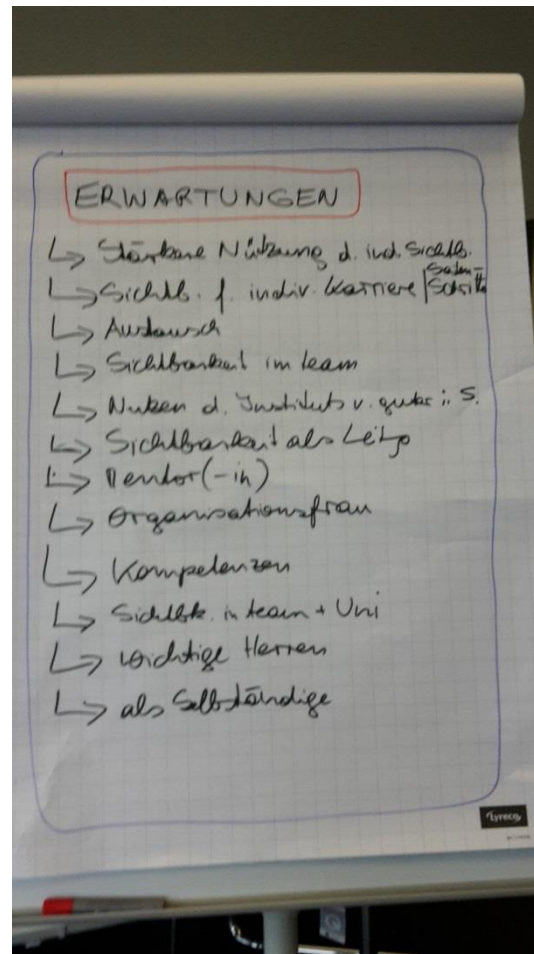 ERWARTUNGEN
↳ Stärkere Nützung d. ind. Sichtb.
↳ Sichtb. f. indiv. Karriere
↳ Austausch
↳ Sichtbarkeit im team
↳ Nutzen d. Instituts v. guter i. S.
↳ Sichtbarkeit als
↳ Mentor(-in)
↳ Organisationsfrau
↳ Kompetenzen
↳ Sichtbk. in team + Uni
↳ wichtige Herren
↳ als Selbständige
Lyreco